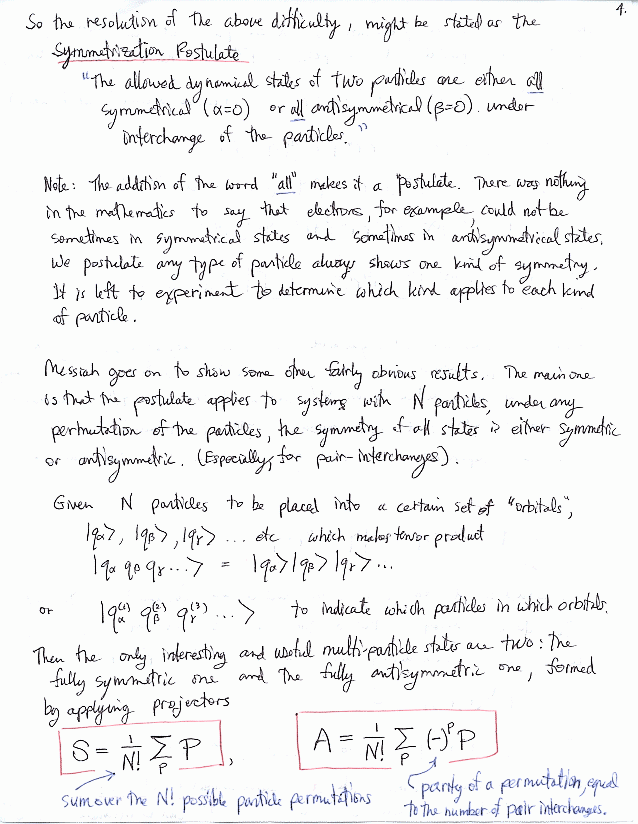 4.
So the resolution of the above difficulty, might be stated as the
Symmetrization Postulate
"The allowed dynamical states of two particles are either all
symmetrical (α=0) or all antisymmetrical (β=0) under
interchange of the particles."
Note: The addition of the word "all" makes it a postulate. There was nothing
in the mathematics to say that electrons, for example, could not be
sometimes in symmetrical states and sometimes in antisymmetrical states.
We postulate any type of particle always shows one kind of symmetry.
It is left to experiment to determine which kind applies to each kind
of particle.
Messiah goes on to show some other fairly obvious results. The main one
is that the postulate applies to systems with N particles, under any
permutation of the particles, the symmetry of all states is either symmetric
or antisymmetric. (Especially, for pair-interchanges).
Given N particles to be placed into a certain set of "orbitals",
|qα>, |qβ>, |qγ> ... etc which makes tensor product
|qα qβ qγ ...> = |qα>|qβ>|qγ>...
or |qα⁽¹⁾ qβ⁽²⁾ qγ⁽³⁾ ...> to indicate which particles in which orbitals.
Then the only interesting and useful multi-particle states are two: the
fully symmetric one and the fully antisymmetric one, formed
by applying projectors
S = 1/N! Σ_P P , A = 1/N! Σ_P (-)^P P
sum over the N! possible particle permutations
parity of a permutation, equal
to the number of pair interchanges.